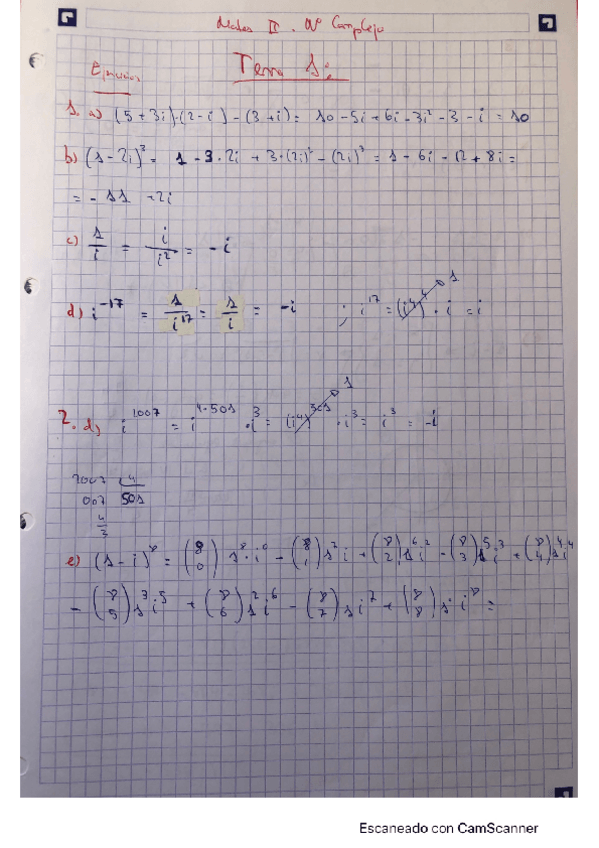 Mates II. Nº Complejo
Ejercicios Tema 1:
1. a) (5 + 3i)·(2 - i) - (3 + i) = 10 - 5i + 6i - 3i² - 3 - i = 10
b) (1 - 2i)³ = 1 - 3·2i + 3·(2i)² - (2i)³ = 1 - 6i - 12 + 8i =
= -11 + 2i
c) 1/i = i/i² = -i
d) i⁻¹⁷ = 1/i¹⁷ = 1/i = -i ; i¹⁷ = (i⁴)⁴ · i = i 1
2. d) i²⁰⁰⁷ = i⁴·⁵⁰¹ · i³ = (i⁴)⁵⁰¹ · i³ = i³ = -i 1
2007 4
007 501
4
3
e) (1 - i)⁸ = (8 0) 1⁸ · i⁰ - (8 1) 1⁷ i + (8 2) 1⁶ i² - (8 3) 1⁵ i³ + (8 4) 1⁴ i⁴
- (8 5) 1³ i⁵ + (8 6) 1² i⁶ - (8 7) 1 i⁷ + (8 8) 1⁰ i⁸ =
Escaneado con CamScanner